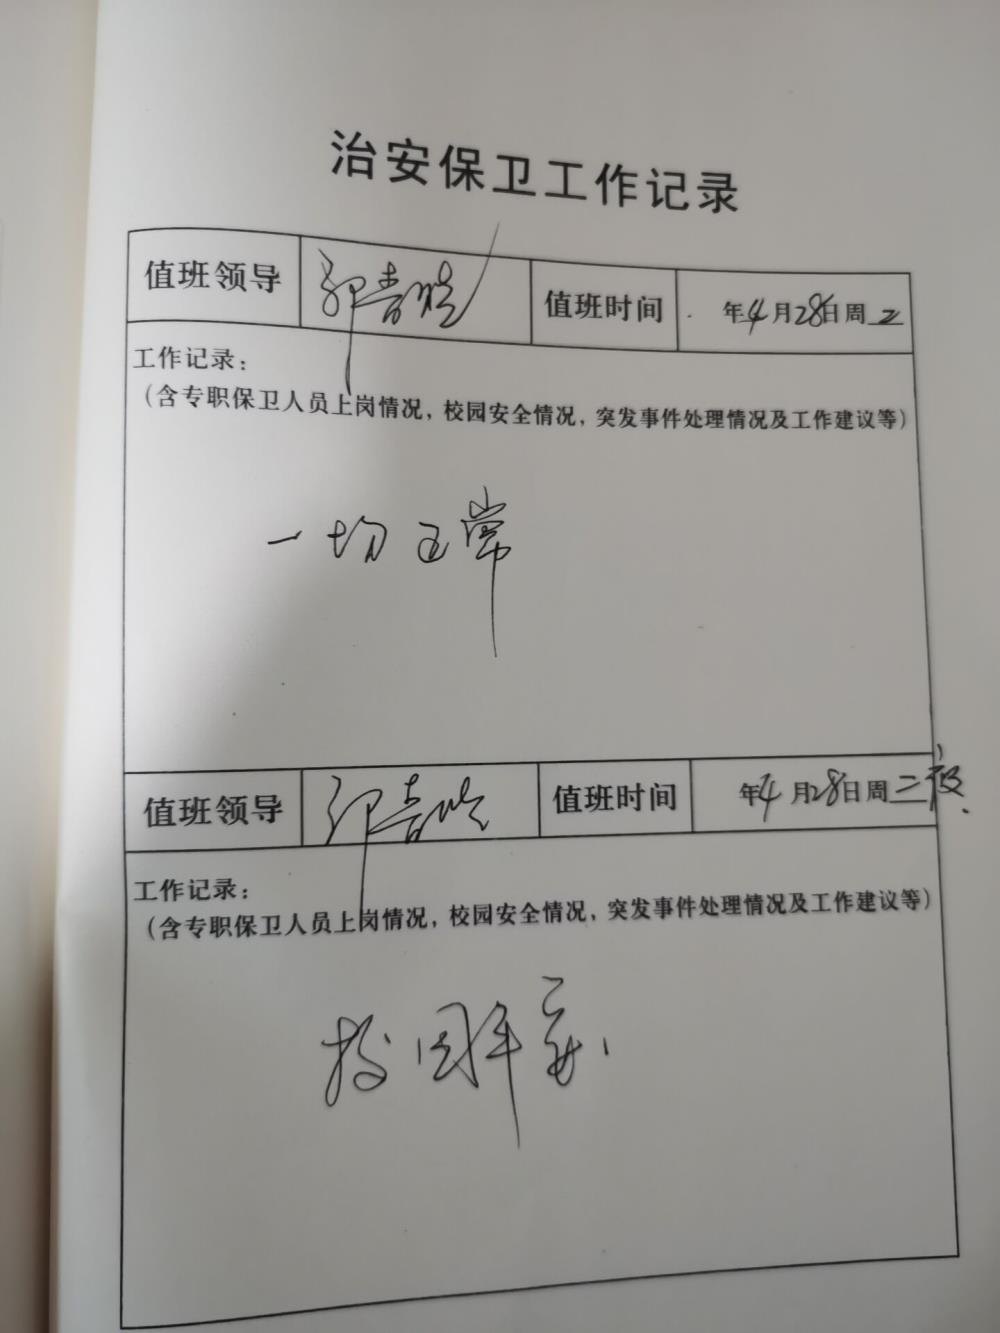 治安保卫工作记录
值班领导 值班时间 年4月28日周二
工作记录：
（含专职保卫人员上岗情况，校园安全情况，突发事件处理情况及工作建议等）
一切正常
值班领导 值班时间 年4月28日周二夜
工作记录：
（含专职保卫人员上岗情况，校园安全情况，突发事件处理情况及工作建议等）
校园平安